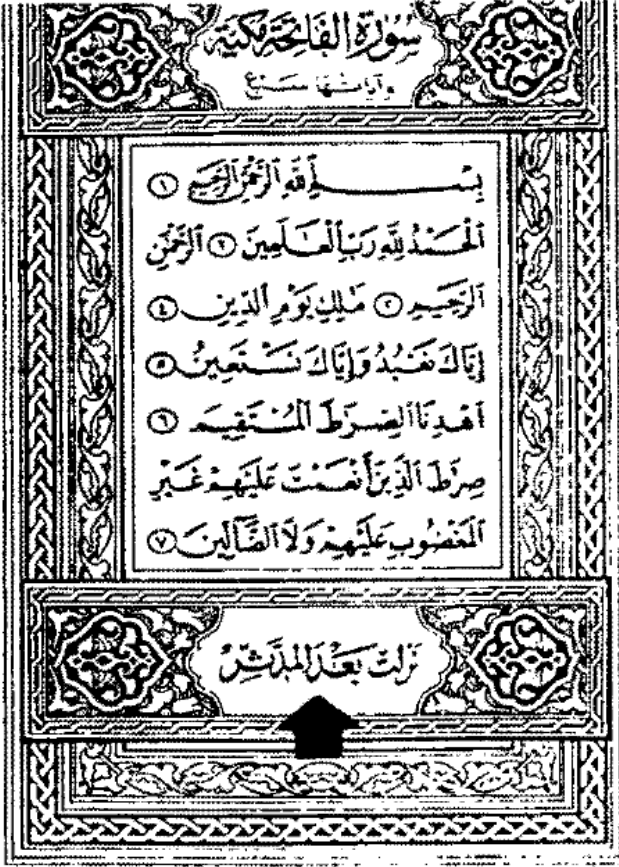 سُورَةُ الفَاتِحَةِ مَكِّيَّةٌ
وآياتها سَبْع
بِسْمِ ٱللَّهِ ٱلرَّحْمَٰنِ ٱلرَّحِيمِ ١
ٱلْحَمْدُ لِلَّهِ رَبِّ ٱلْعَٰلَمِينَ ٢ ٱلرَّحْمَٰنِ
ٱلرَّحِيمِ ٣ مَٰلِكِ يَوْمِ ٱلدِّينِ ٤
إِيَّاكَ نَعْبُدُ وَإِيَّاكَ نَسْتَعِينُ ٥
ٱهْدِنَا ٱلصِّرَٰطَ ٱلْمُسْتَقِيمَ ٦
صِرَٰطَ ٱلَّذِينَ أَنْعَمْتَ عَلَيْهِمْ غَيْرِ
ٱلْمَغْضُوبِ عَلَيْهِمْ وَلَا ٱلضَّآلِّينَ ٧
نَزَلَتْ بَعْدَ المُدَّثِّرِ